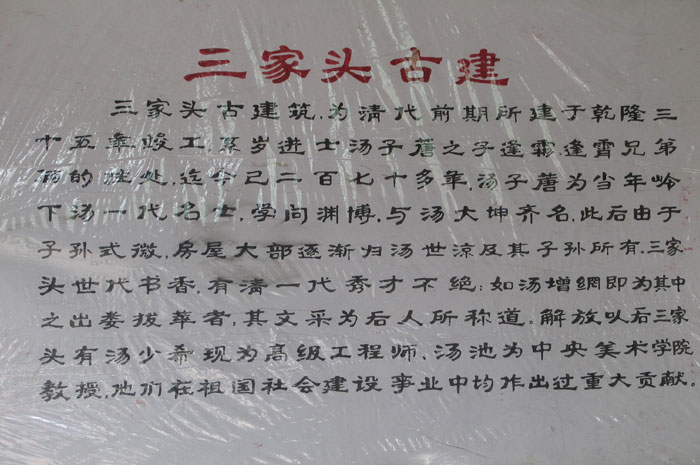 三家头古建
三家头古建筑,为清代前期所建于乾隆三
十五年竣工,系岁进士汤子蓍之子逢霖,逢霄兄弟
俩的住处,迄今已二百七十多年,汤子蓍为当年岭
下汤一代名士,学问渊博,与汤大坤齐名,此后由于
子孙式微,房屋大部逐渐归汤世凉及其子孙所有,三家
头世代书香,有清一代秀才不绝:如汤增網即为其中
之出娄拔萃者,其文采为后人所称道。解放以后三家
头有汤少希现为高级工程师,汤池为中央美术学院
教授,他们在祖国社会建设事业中均作出过重大贡献。